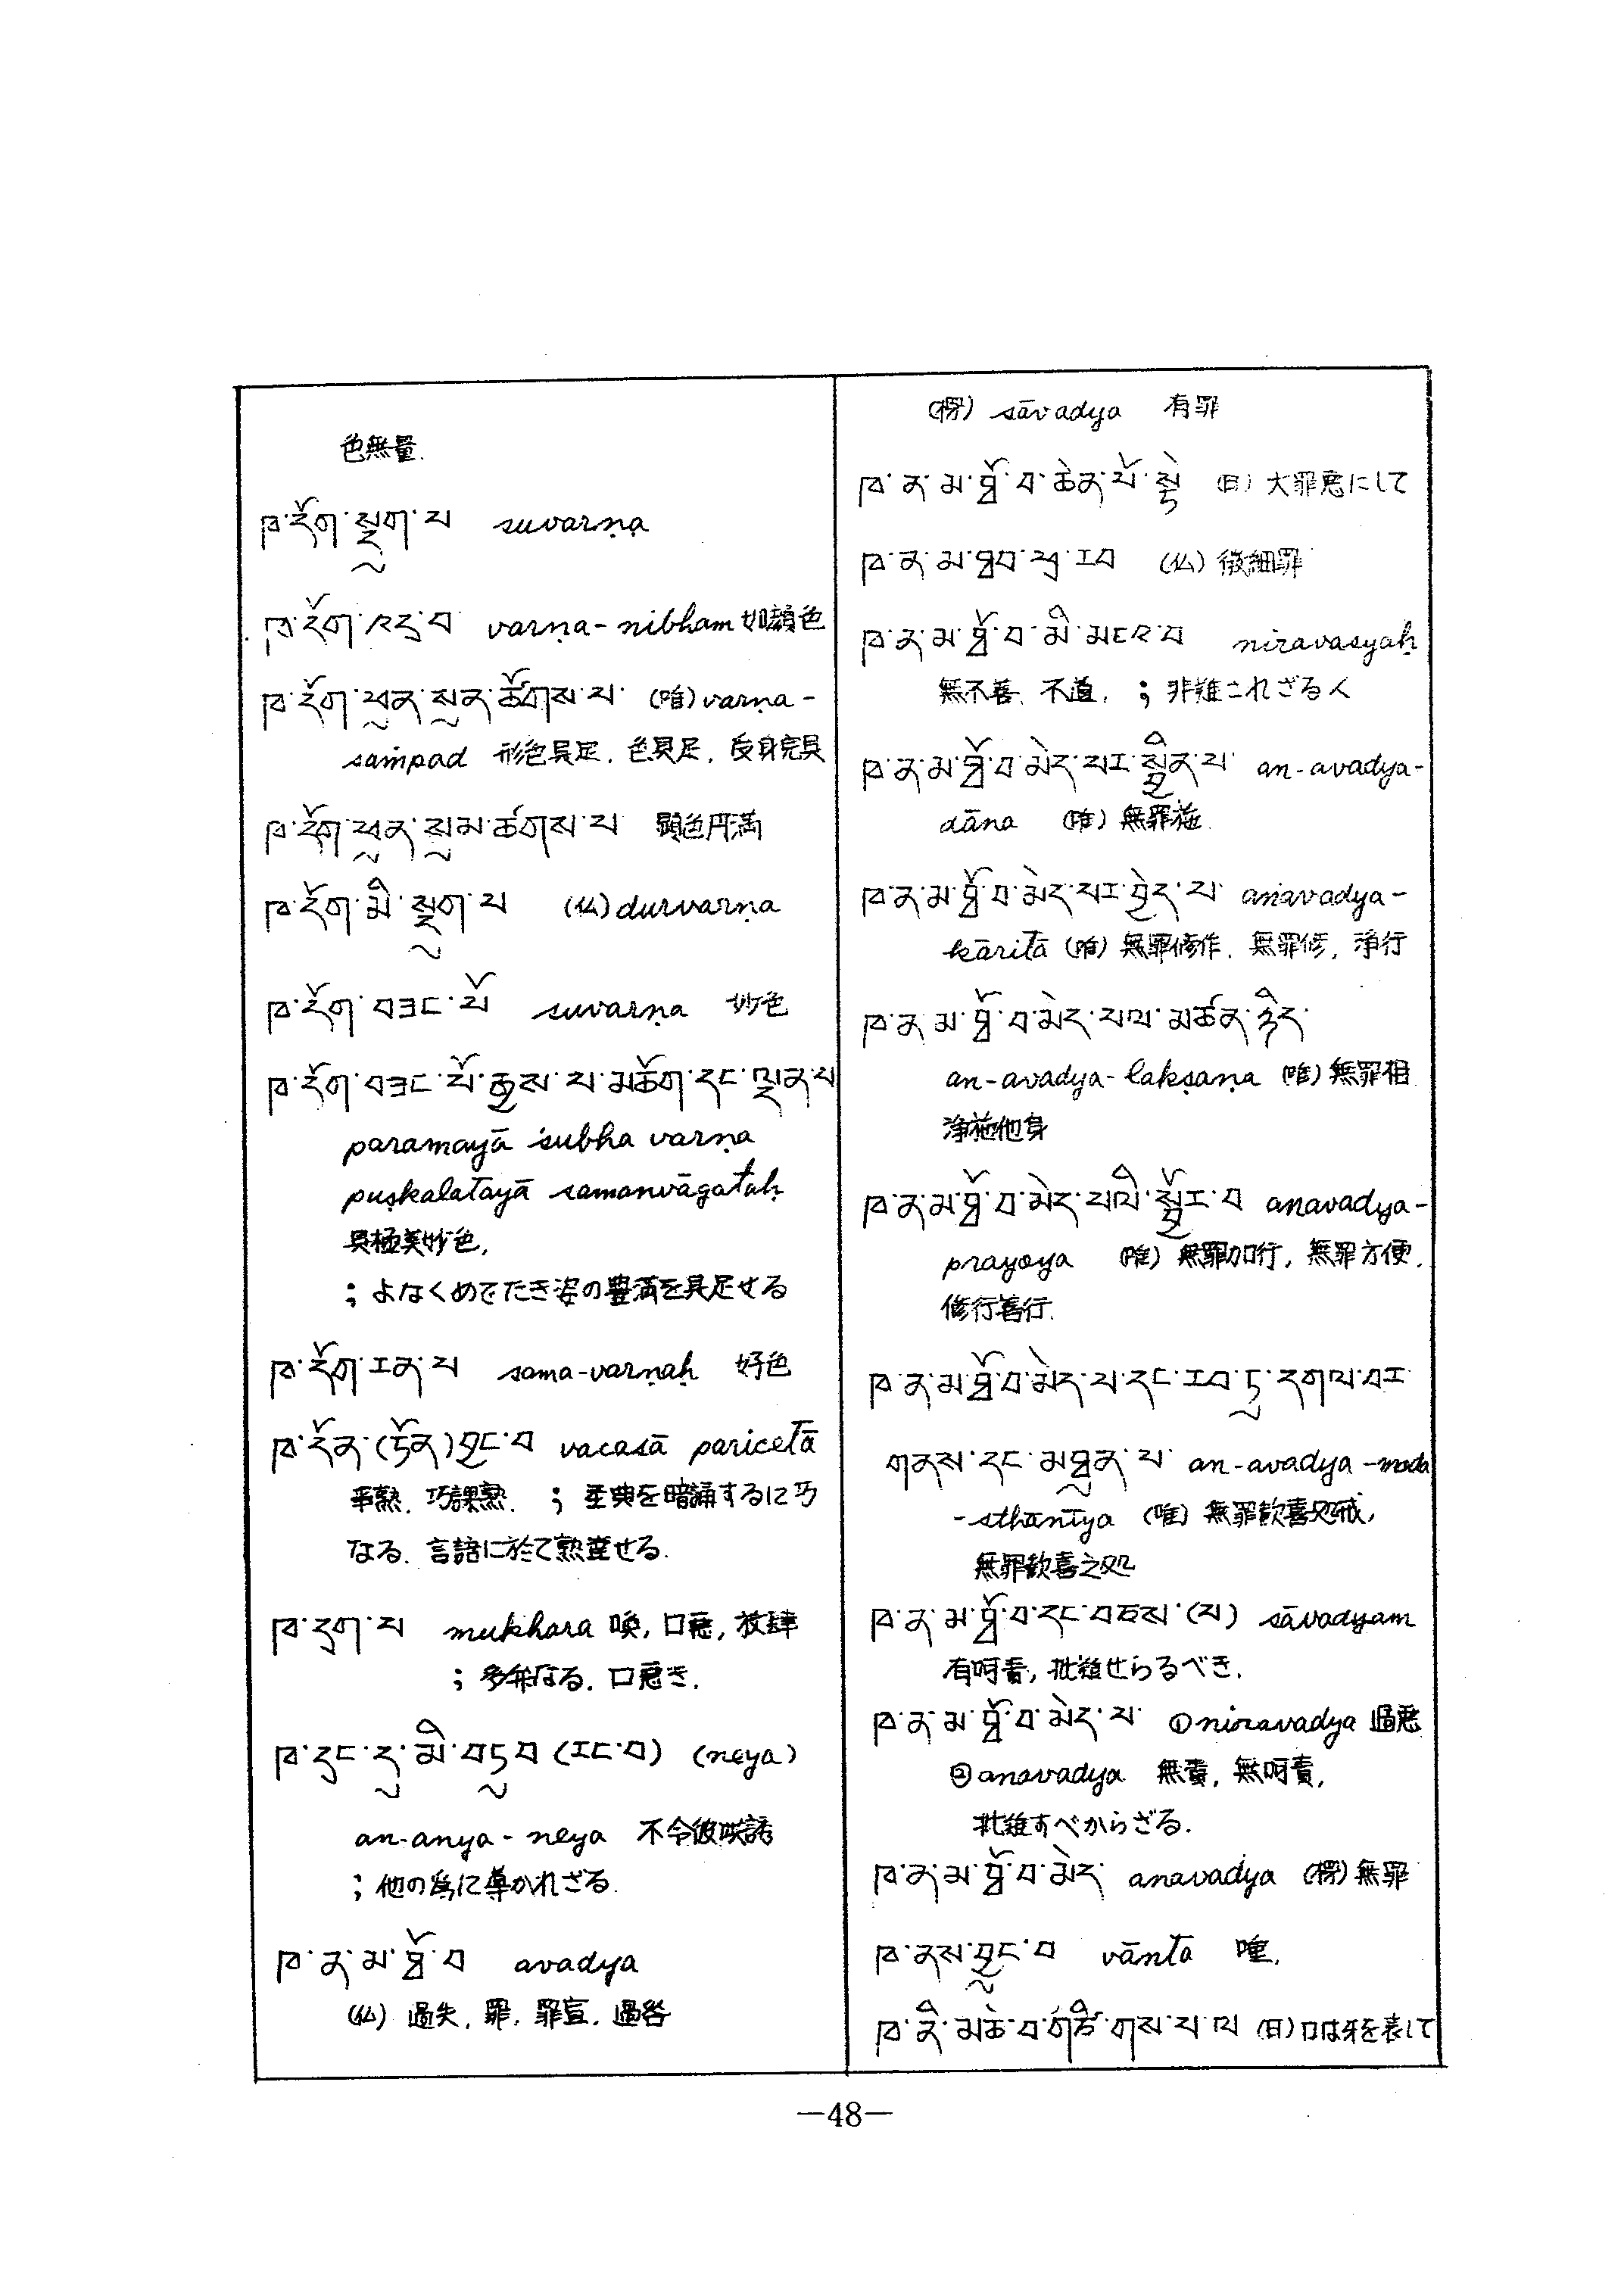 色無量.
ཁ་དོག་སྡུག་པ suvarṇa
ཁ་དོག་འདྲ་བ varṇa-nibham 如顔色
ཁ་དོག་ཕུན་སུན་ཚོགས་པ་ (唯) varṇa-
saṁpad 形色具足, 色具足, 皮身完具
ཁ་དོག་ཕུན་སུམ་ཚོགས་པ 顕色円満
ཁ་དོག་མི་སྡུག་པ (仏) durvarṇa
ཁ་དོག་བཟང་པོ suvarṇa 妙色
ཁ་དོག་བཟང་པོ་རྒྱས་པ་མཆོག་དང་ལྡན་པ
paramayā śubha varṇa
puṣkalatayā samanvāgataḥ
具極美妙色,
; よなくめでたき姿の豊満を具足せる
ཁ་དོག་ངན་པ sama-varṇaḥ 好色
ཁ་དོན་(ཏོན་)བྱང་བ vacasā paricetā
; 聖典を暗誦するに巧
なる. 言語に於て熟達せる.
ཁ་དྲག་པ mukhara 喚, 口悪, 放肆
; 多弁なる. 口悪き.
ཁ་དྲང་དུ་མི་བཏུབ (ངང་བ) (neya)
an-anya-neya 不令彼咲誘
; 他の為に導かれざる.
ཁ་ན་མ་ཐོ་བ avadya
(仏) 過失, 罪, 罪宣, 過咎
(楞) sāvadya 有罪
ཁ་ན་མ་ཐོ་བ་ཆེན་པོ་སྟེ (日) 大罪悪にして
ཁ་ན་མ་ཐབ་ཕྲ་ངབ (仏) 微細罪
ཁ་ན་མ་ཐོ་བ་མི་མངའ་བ niravasyaḥ
無不善, 不道, ; 非難これざる人
ཁ་ན་མ་ཐོ་བ་མེད་པར་སྦྱིན་པ་ an-avadya-
dāna (唯) 無罪施
ཁ་ན་མ་ཐོ་བ་མེད་པར་བྱེད་པ་ anavadya-
kāritā (唯) 無罪修作, 無罪修, 浄行
ཁ་ན་མ་ཐོ་བ་མེད་པལ་མཚན་ཉིད་
an-avadya-lakṣaṇa (唯) 無罪相
浄施他身
ཁ་ན་མ་ཐོ་བ་མེད་པལི་སྦྱོར་བ anavadya-
prayoya (唯) 無罪加行, 無罪方便,
修行善行.
ཁ་ན་མ་ཐོ་བ་མེད་པ་དང་རབ་ཏུ་དགལ་བར
གནས་དང་མཐུན་པ་ an-avadya-moda
-sthānīya (唯) 無罪歓喜処戒,
無罪歓喜之処
ཁ་ན་མ་ཐོ་བ་དང་བཅས་(པ) sāvadyam
有呵責, 批難せらるべき.
ཁ་ན་མ་ཐོ་བ་མེད་པ ①niravadya 過悪
②anavadya 無責, 無呵責,
批難すべからざる.
ཁ་ན་མ་ཐོ་བ་མེད་ anavadya (楞) 無罪
ཁ་ནས་བྱུང་བ vānta 唾.
ཁ་ནི་མཆེ་བ་གཙིགས་པ་ལ (日) 口は牙を表して
—48—